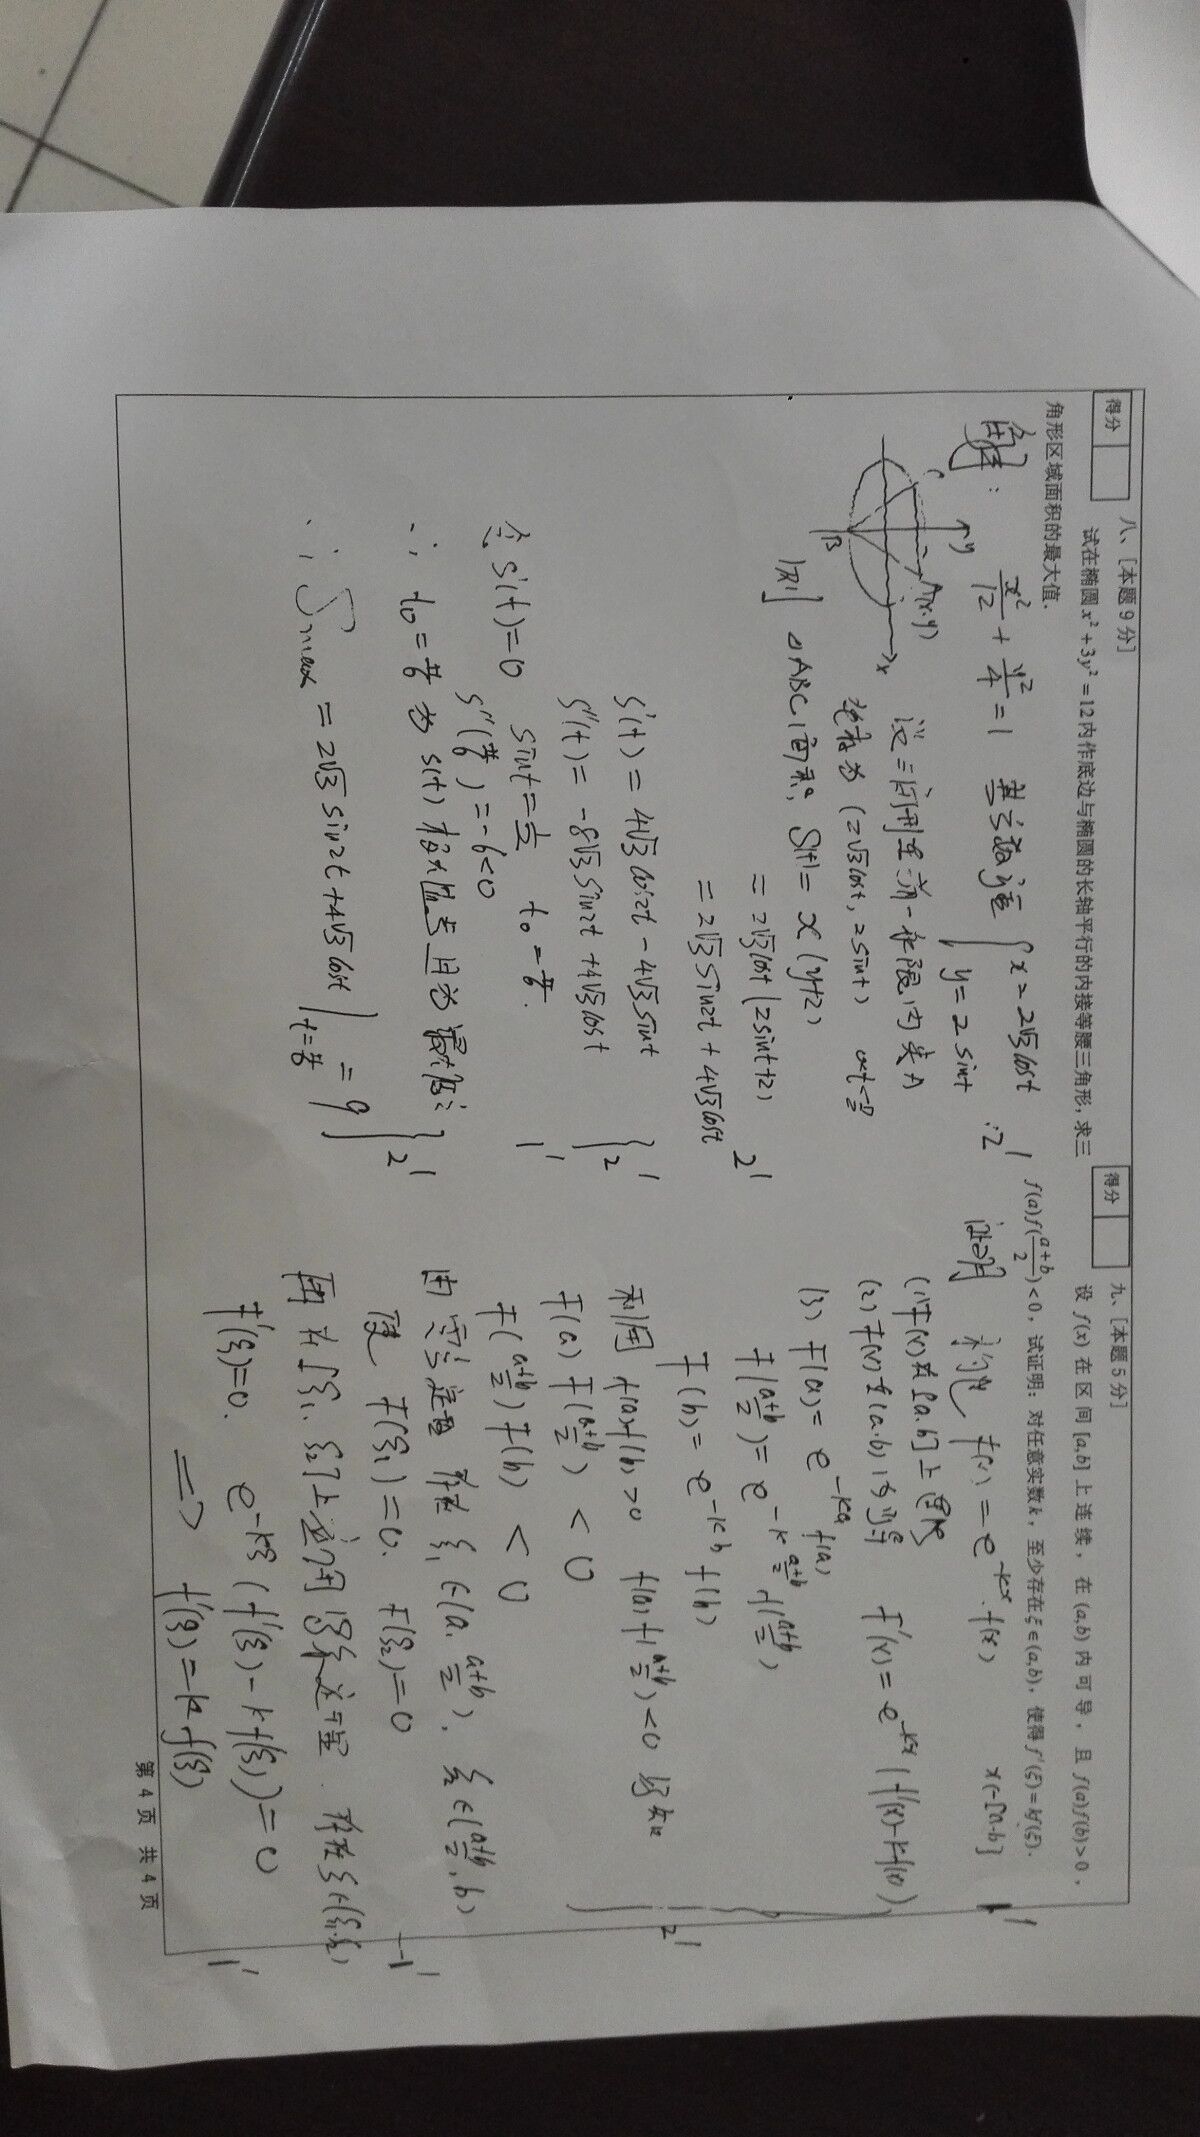 得分
八、[本题9分]
试在椭圆 x² + 3y² = 12 内作底边与椭圆的长轴平行的内接等腰三角形, 求三
角形区域面积的最大值.
解: x²/12 + y²/4 = 1 其参数方程 { x = 2√3 cost
y = 2 sint
2'
y
A(x.y)
C
x
B
设三角形在第一象限内
坐标为 (2√3cost, 2sint) 0<t<π/2
则 △ABC 面积 S(t) = x (y+2)
= 2√3cost (2sint+2)
= 2√3 sin2t + 4√3cost
2'
S'(t) = 4√3 cos2t - 4√3 sint
S''(t) = -8√3 sin2t + 4√3 cost
} 2'
令 S'(t) = 0 sint = 1/2 t₀ = π/6.
1'
S''(π/6) = -6 < 0
∴ t₀ = π/6 为 S(t) 极大值点且为最大值点
∴ Smax = 2√3 sin2t + 4√3 cost | t=π/6 = 9
} 2'
得分
九、[本题5分]
设 f(x) 在区间 [a,b] 上连续, 在 (a,b) 内可导, 且 f(a)f(b) > 0,
f(a)f((a+b)/2) < 0, 试证明: 对任意实数 k, 至少存在 ξ ∈ (a,b), 使得 f'(ξ) = kf(ξ).
证明 构造 F(x) = e^(-kx) · f(x) x∈[a.b]
1'
(1) F(x) 在 [a,b] 上连续
(2) F(x) 在 (a,b) 内可导 F'(x) = e^(-kx) (f'(x) - kf(x))
(3) F(a) = e^(-ka) f(a)
F((a+b)/2) = e^(-k (a+b)/2) f((a+b)/2)
F(b) = e^(-kb) f(b)
利用 f(a)f(b) > 0 f(a)f((a+b)/2) < 0 知
F(a) F((a+b)/2) < 0
F((a+b)/2) F(b) < 0
2'
由零点定理 存在 ξ₁ ∈ (a, (a+b)/2), ξ₂ ∈ ((a+b)/2, b)
使 F(ξ₁) = 0. F(ξ₂) = 0
1'
再在 [ξ₁, ξ₂] 上应用罗尔定理. 存在 ξ∈(ξ₁,ξ₂)
F'(ξ) = 0. e^(-kξ) (f'(ξ) - kf(ξ)) = 0
1'
⟹ f'(ξ) = k f(ξ)
第 4 页 共 4 页